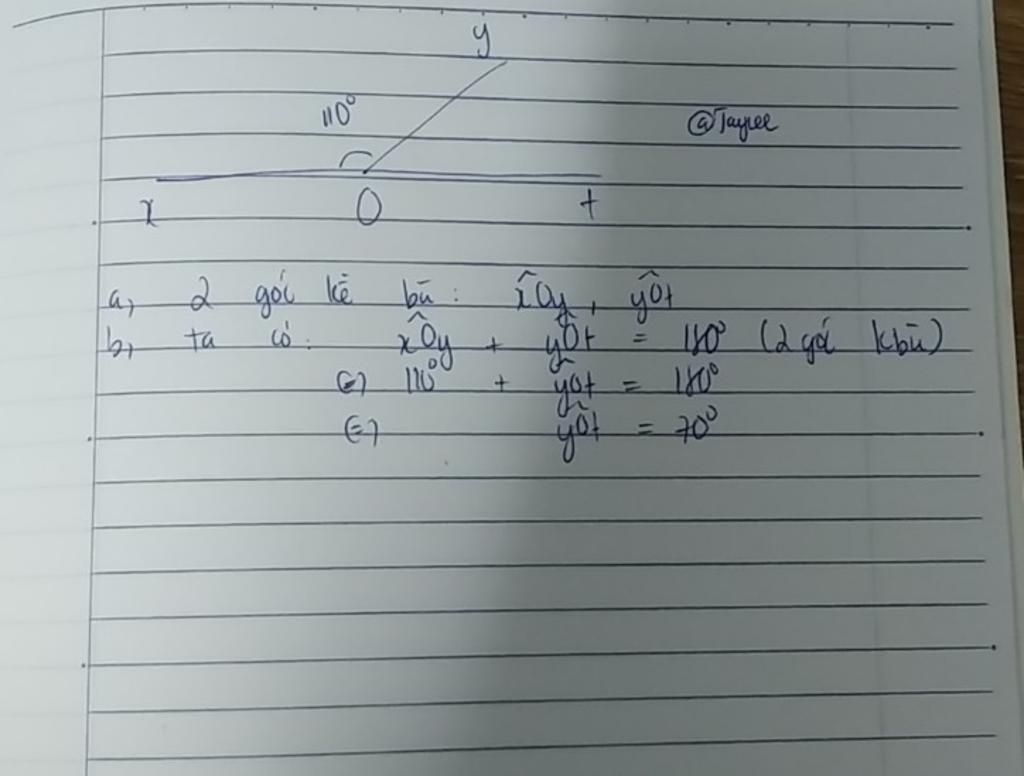 y
110°
@Tayree
x O t
a, 2 góc kề bù : xÔy , yÔt
b, ta có : xÔy + yÔt = 180° (2 góc kbù)
<=> 110° + yÔt = 180°
<=> yÔt = 70°